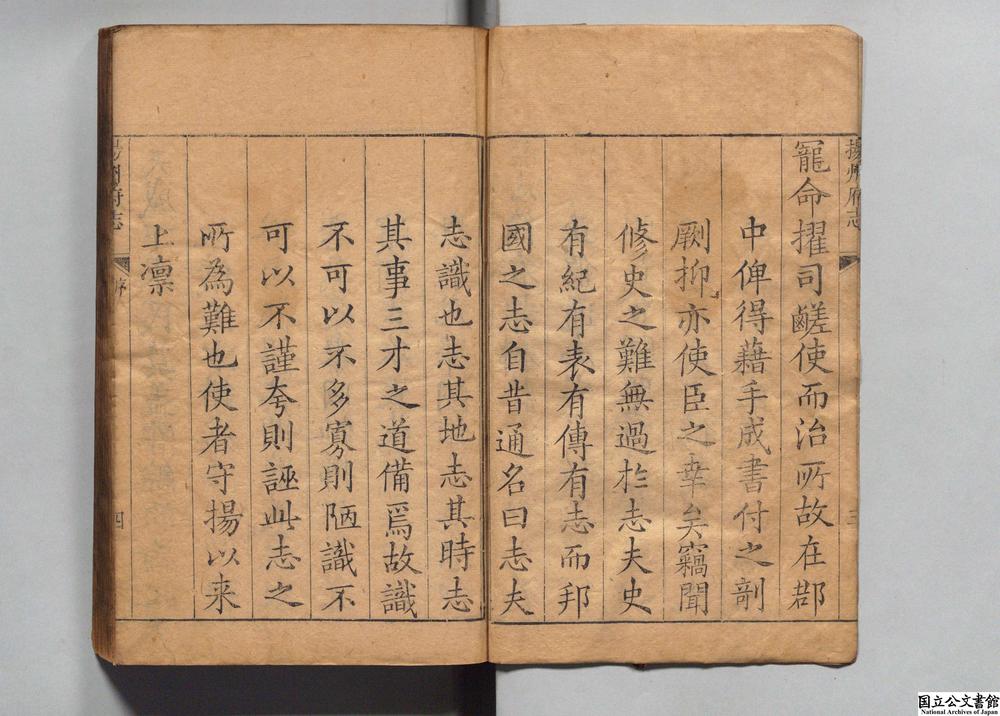 揚州府志
三
寵命擢司鹺使而治所故在郡
中俾得藉手成書付之剞
劂抑亦使臣之幸矣竊聞
修史之難無過於志夫史
有紀有表有傳有志而邦
國之志自昔通名曰志夫
志識也志其地志其時志
其事三才之道備焉故識
不可以不多寡則陋識不
可以不謹夸則誣此志之
所為難也使者守揚以来
上凛
揚州府志
序
四
国立公文書館
National Archives of Japan